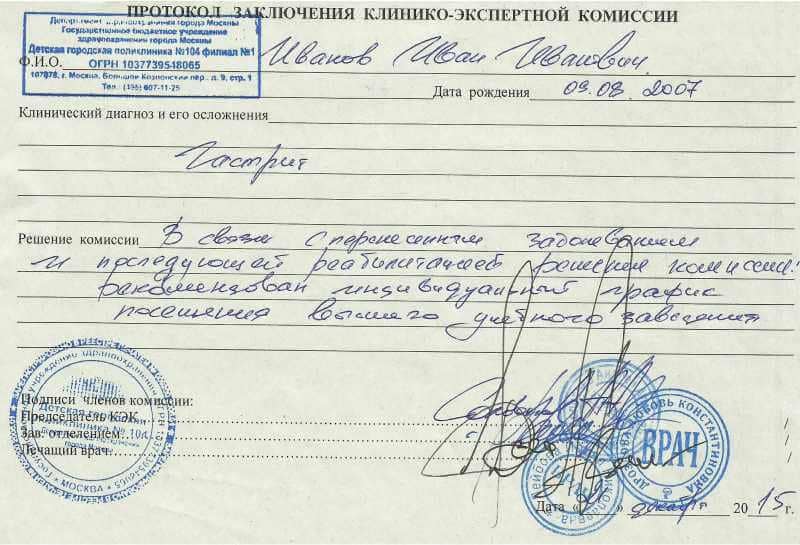 ПРОТОКОЛ ЗАКЛЮЧЕНИЯ КЛИНИКО-ЭКСПЕРТНОЙ КОМИССИИ
Департамент здравоохранения города Москвы
Государственное бюджетное учреждение
здравоохранения города Москвы
Детская городская поликлиника №104 филиал №1
ОГРН 1037739548065
107078, г. Москва, Большой Козловский пер., д. 9, стр. 1
Тел. (495) 607-11-25
Ф.И.О. Иванов Иван Иванович
Дата рождения 09.08.2007
Клинический диагноз и его осложнения
Гастрит
Решение комиссии В связи с перенесенным заболеванием
и последующей реабилитацией решением комиссии:
рекомендован индивидуальный график
посещения высшего учебного заведения
Подписи членов комиссии:
Председатель КЭК
Зав. отделением:
Лечащий врач:
Детская городская
поликлиника № 104
МОСКВА
ЛЮБОВЬ КОНСТАНТИНОВНА
ВРАЧ
Дата « » декабря 2015 г.